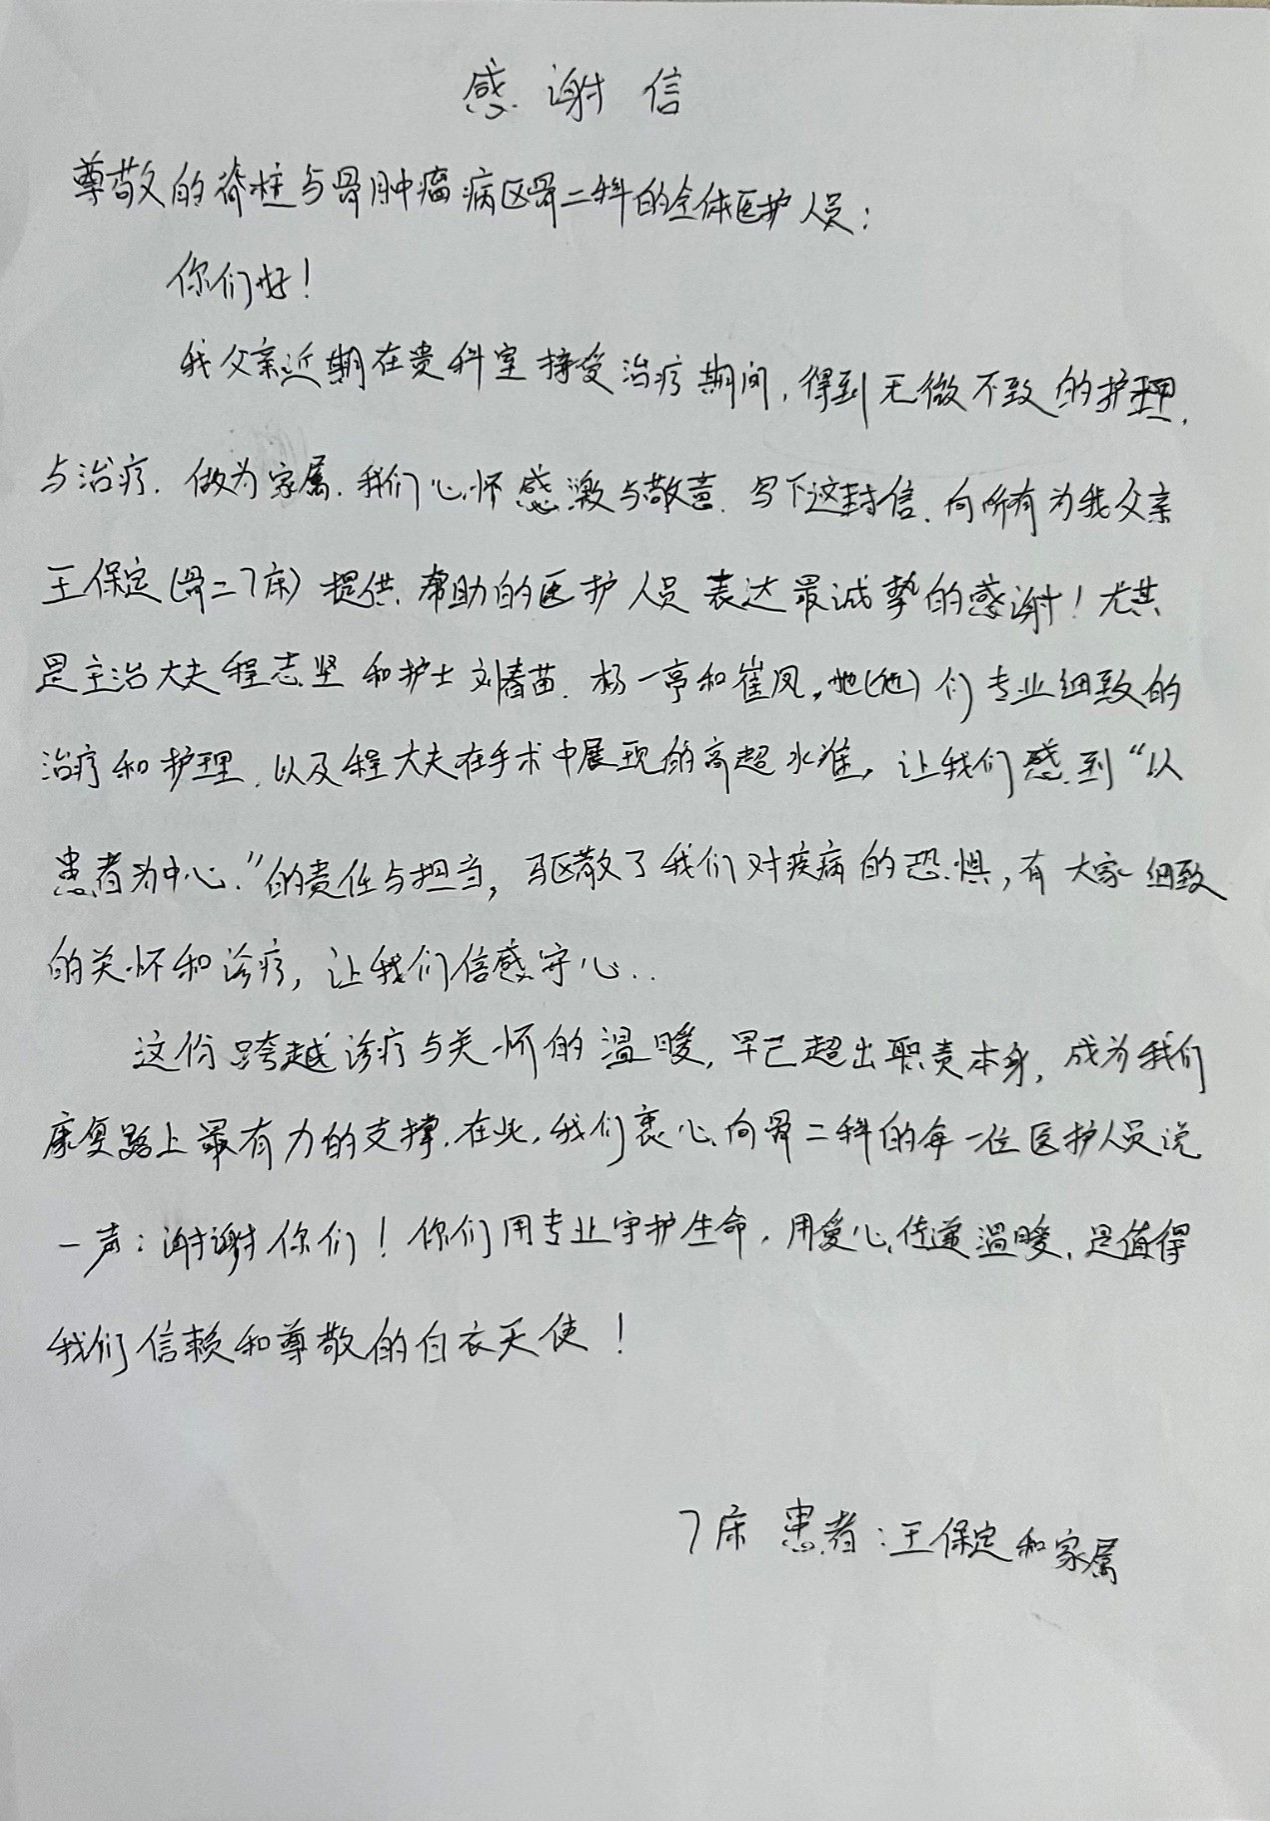 感谢信
尊敬的脊柱与骨肿瘤病区骨二科的全体医护人员：
你们好！
我父亲近期在贵科室接受治疗期间，得到无微不致的护理，
与治疗．做为家属．我们心怀感激与敬意．写下这封信．向所有为我父亲
王保定（骨二7床）提供．帮助的医护人员表达最诚挚的感谢！尤其
是主治大夫程志坚和护士刘春苗．杨一亭和崔凤，她（他）们专业细致的
治疗和护理，以及程大夫在手术中展现的高超水准，让我们感到“以
患者为中心．”的责任与担当，驱散了我们对疾病的恐惧，有大家细致
的关怀和诊疗，让我们信感安心..
这份跨越诊疗与关怀的温暖，早已超出职责本身，成为我们
康复路上最有力的支撑．在此，我们衷心向骨二科的每一位医护人员说
一声：谢谢你们！你们用专业守护生命．用爱心传递温暖．是值得
我们信赖和尊敬的白衣天使！
7床 患者：王保定和家属